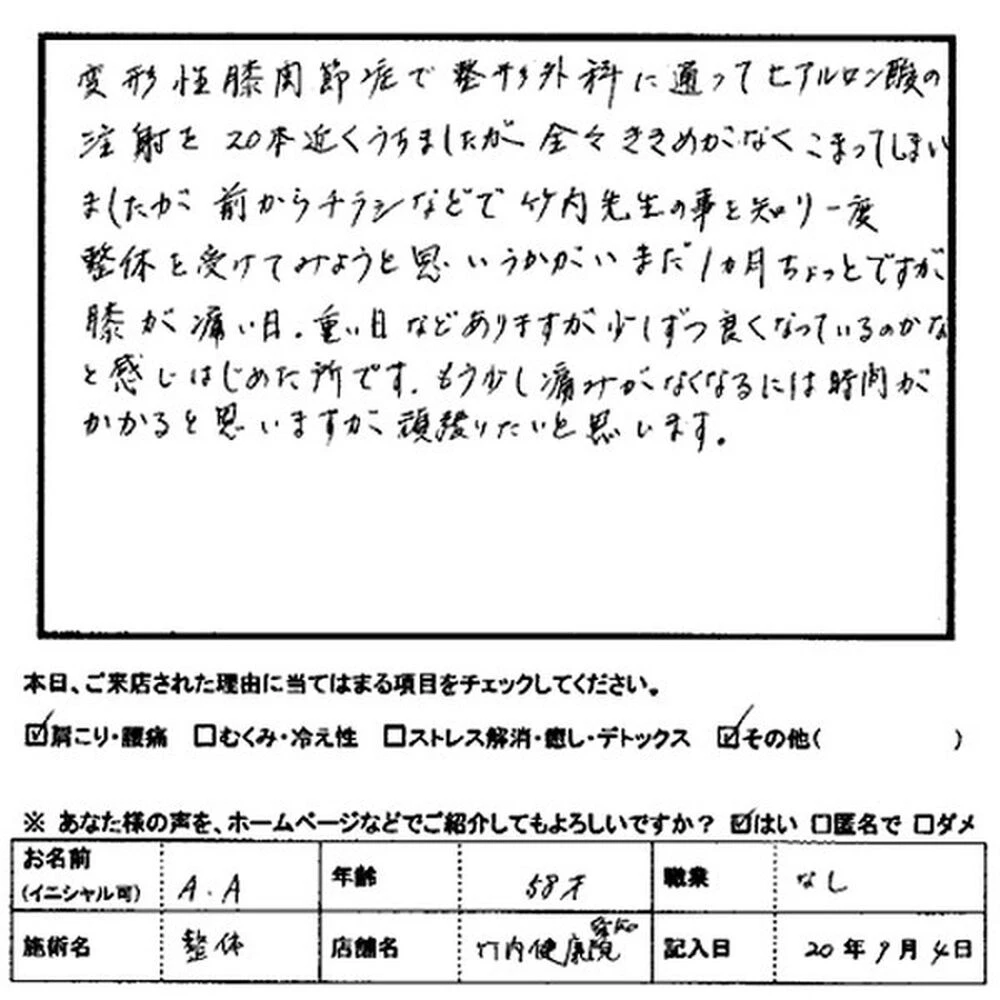 変形性膝関節症で整形外科に通ってヒアルロン酸の
注射を20本近くうちましたが全々ききめがなくこまってしまい
ましたが前からチラシなどで竹内先生の事を知り一度
整体を受けてみようと思いうかがいまだ1カ月ちょっとですが
膝が痛い日.重い日などありますが少しずつ良くなっているのかな
と感じはじめた所です.もう少し痛みがなくなるには時間が
かかると思いますが頑張りたいと思います。
本日、ご来店された理由に当てはまる項目をチェックしてください。
☑肩こり・腰痛 □むくみ・冷え性 □ストレス解消・癒し・デトックス ☑その他( )
※ あなた様の声を、ホームページなどでご紹介してもよろしいですか? ☑はい □匿名で □ダメ
お名前 (イニシャル可) A.A 年齢 58才 職業 なし
施術名 整体 店舗名 竹内健康院 記入日 20年9月4日